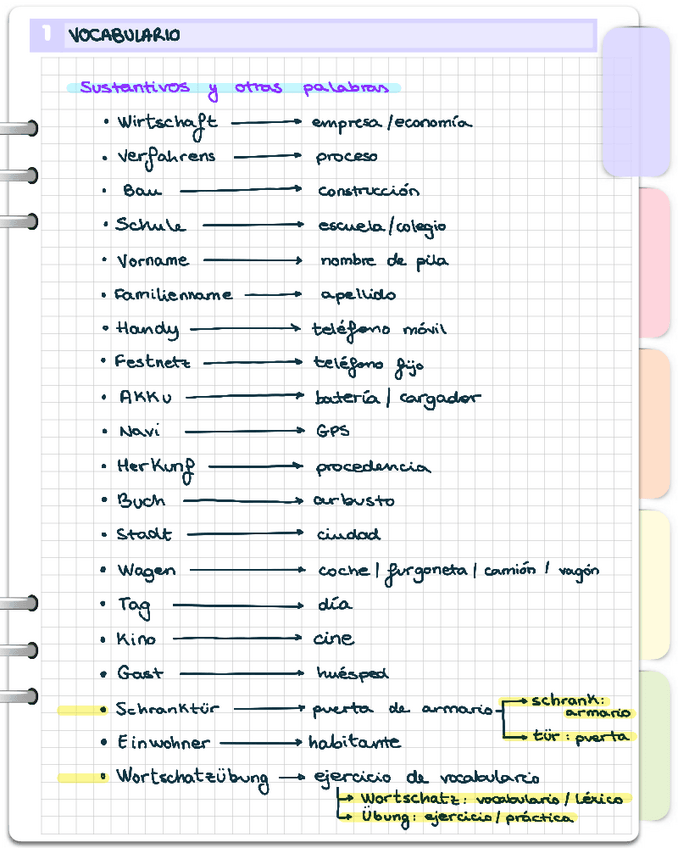 1 VOCABULARIO
Sustantivos y otras palabras
• Wirtschaft → empresa/economía
• Verfahrens → proceso
• Bau → construcción
• Schule → escuela/colegio
• Vorname → nombre de pila
• Familienname → apellido
• Handy → teléfono móvil
• Festnetz → teléfono fijo
• Akku → batería/cargador
• Navi → GPS
• Herkunf → procedencia
• Buch → arbusto
• Stadt → ciudad
• Wagen → coche/furgoneta/camión/vagón
• Tag → día
• Kino → cine
• Gast → huésped
• Schranktür → puerta de armario → schrank:
armario
→ tür: puerta
• Einwohner → habitante
• Wortschatzübung → ejercicio de vocabulario
→ Wortschatz: vocabulario/léxico
→ Übung: ejercicio/práctica